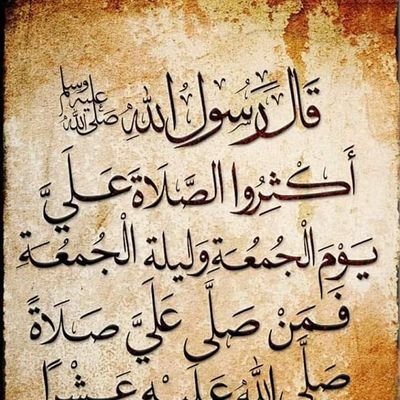 قَالَ رَسُولُ اللهِ صلى الله عليه وسلم
أَكْثِرُوا الصَّلَاةَ عَلَيَّ
يَوْمَ الْجُمُعَةِ وَلَيلَةَ الْجُمُعَةِ
فَمَنْ صَلَّى عَلَيَّ صَلَاةً
صَلَّى اللهُ عَلَيْهِ عَشْرًا